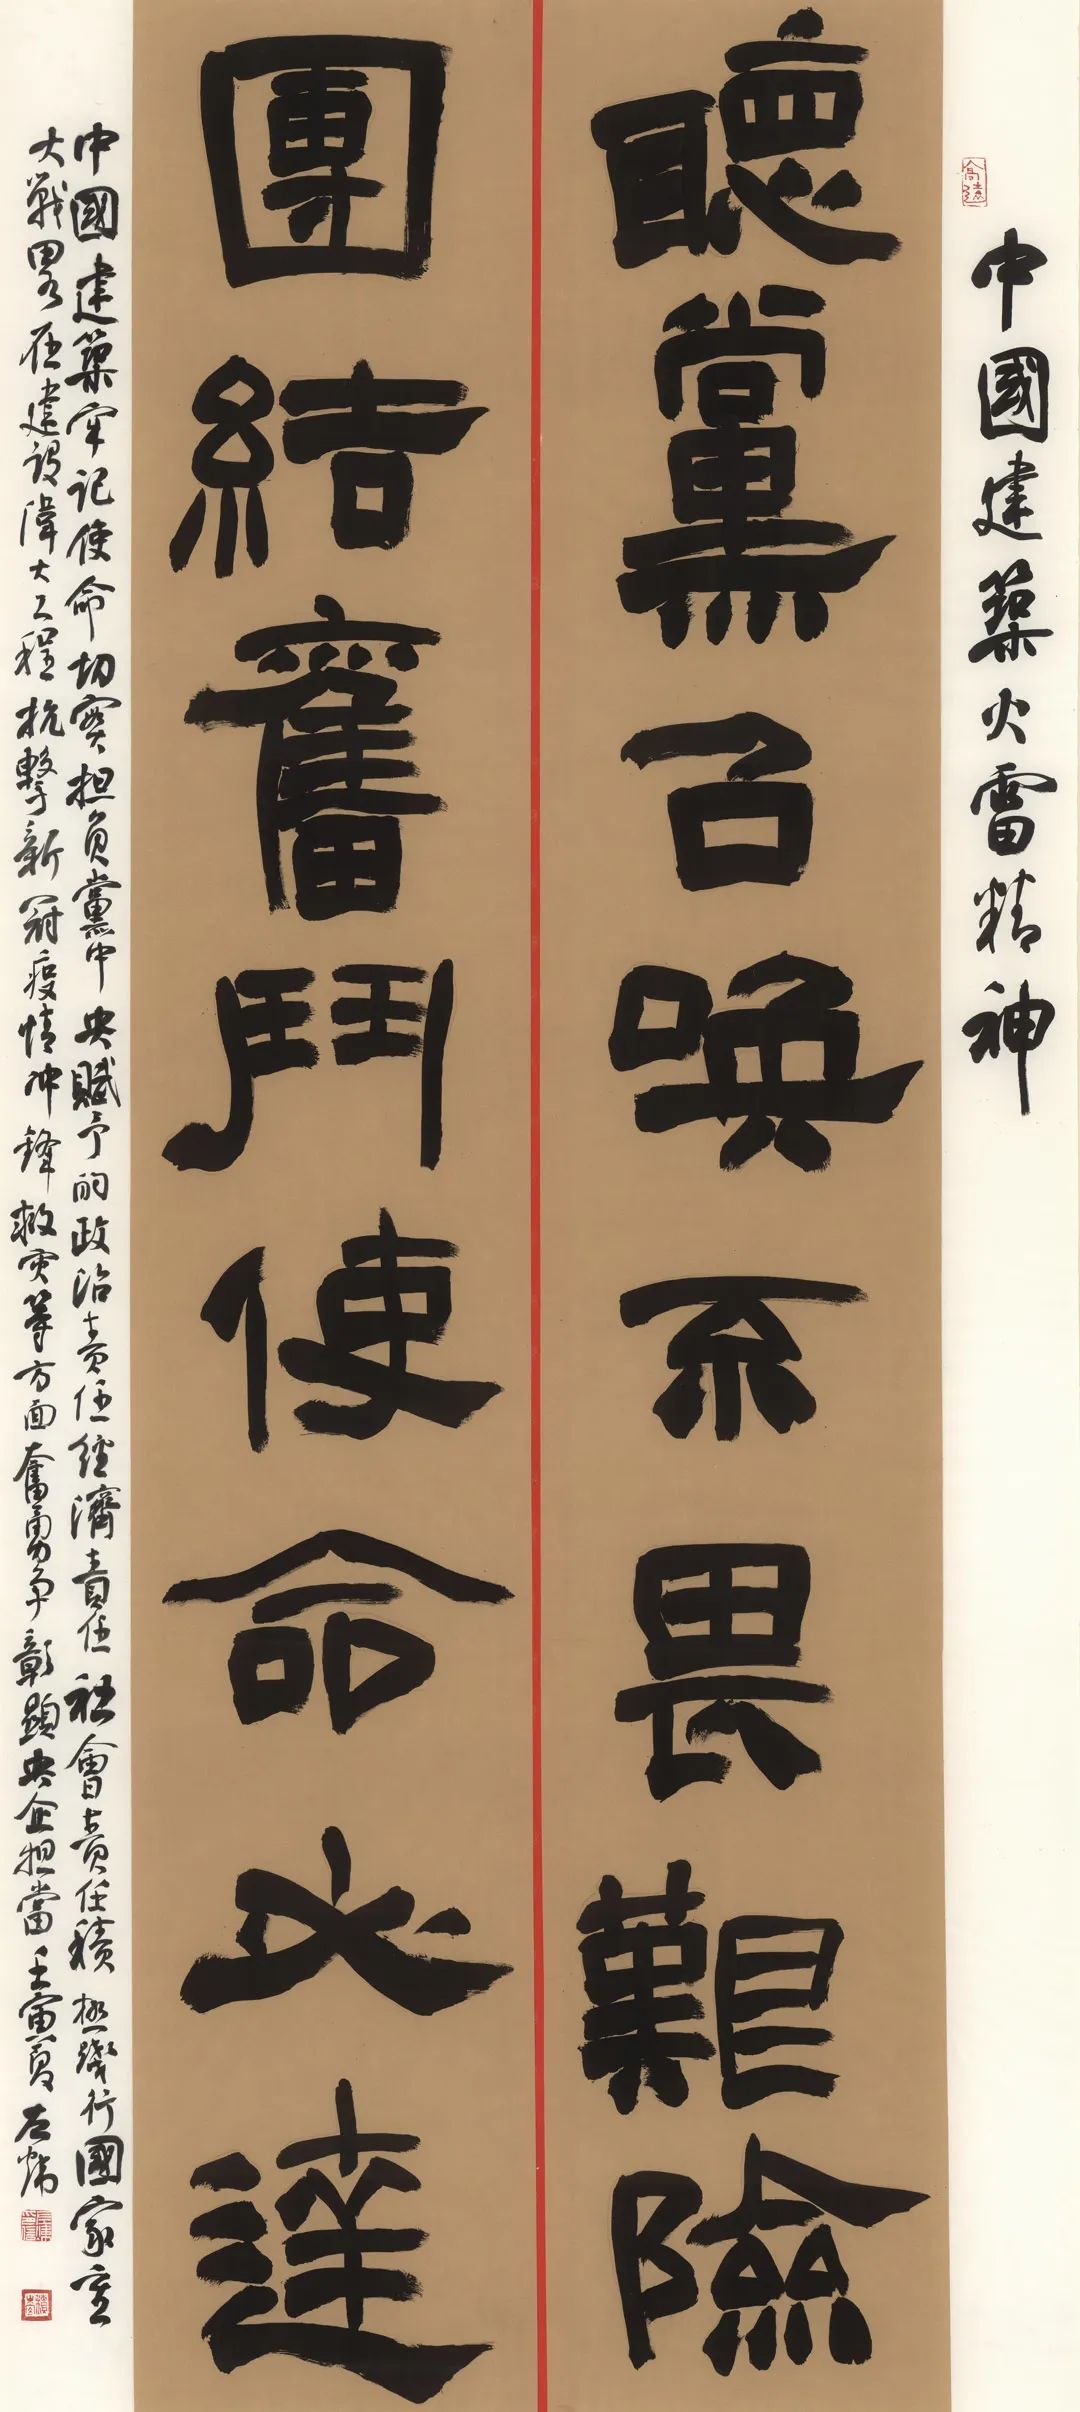 中國建築火雷精神
聽黨召喚不畏艱險
團結奮鬥使命必達
中國建築牢記使命切實担負黨中央賦予的政治責任經濟責任社會責任積極踐行國家重
大戰略在建設偉大工程抗擊新冠疫情冲鋒救灾等方面奮勇争彰顯央企担當壬寅夏左煒